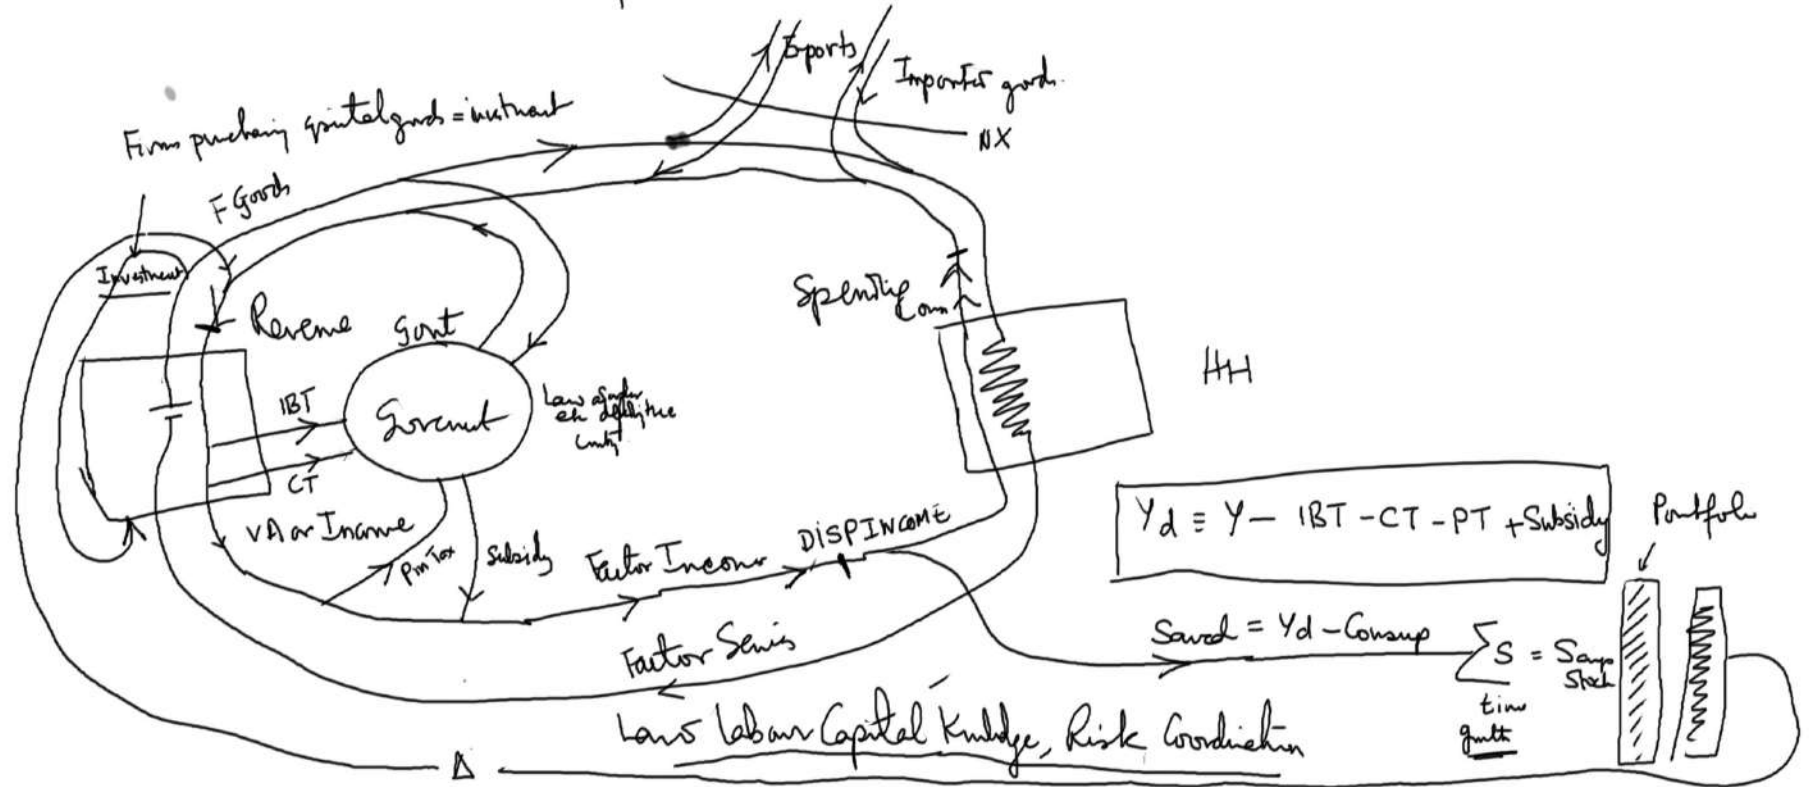 Exports
Imported goods.
NX
Firms purchasing capital goods = investment
F Goods
Investment
Revenue
Govt
Spending
Com
HH
IBT
Government
Law & order
CT
VA or Income
Subsidy
Factor Income
DISPINCOME
Yd ≡ Y - IBT - CT - PT + Subsidy
Portfolio
Factor Servis
Saved = Yd - Consup
ΣS = 
Stock
time
Land Labour Capital Knwldge, Risk Coordination
Δ